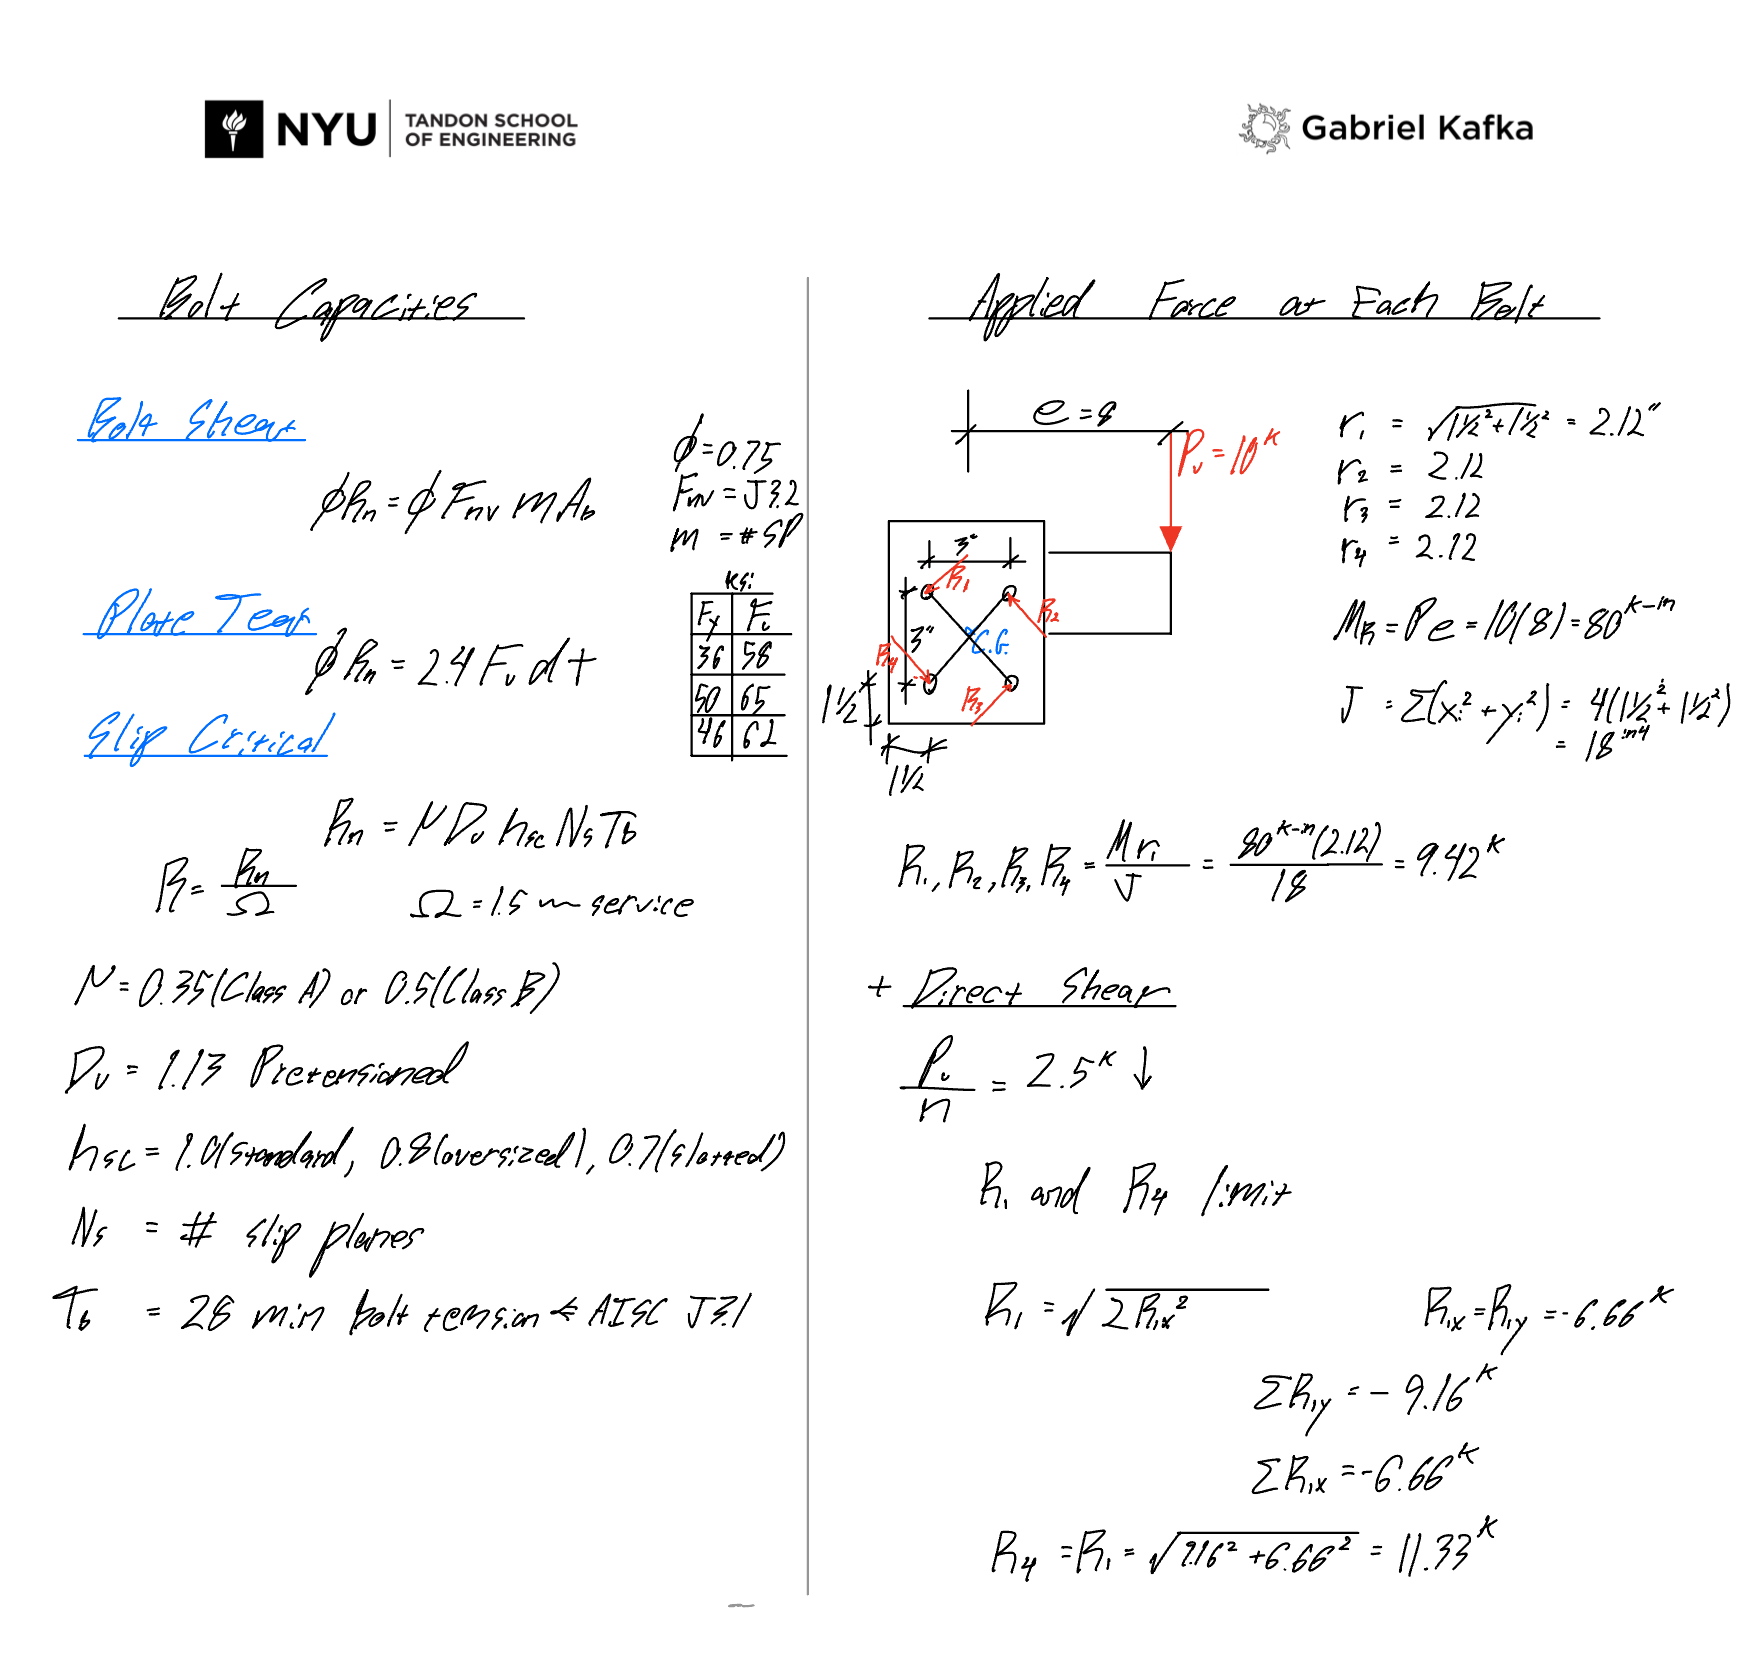 NYU TANDON SCHOOL
OF ENGINEERING
Gabriel Kafka
Bolt Capacities
Bolt Shear
ϕRn = ϕ Fnv m Ab
ϕ = 0.75
Fnv = J3.2
m = # SP
Plate Tear
ϕ Rn = 2.4 Fu d t
ksi
Fy Fu
36 58
50 65
46 62
Slip Critical
Rn = μ Du hsc Ns Tb
R = Rn/Ω
Ω = 1.5 ~ service
μ = 0.35(Class A) or 0.5(Class B)
Du = 1.13 Pretensioned
hsc = 1.0(standard, 0.8(oversized), 0.7(slotted)
Ns = # slip planes
Tb = 28 min bolt tension ← AISC J3.1
Applied Force at Each Bolt
e = 8
Pu = 10ᴷ
3"
R1
R2
3"
C.G.
R4
R3
1 1/2
1 1/2
r1 = √(1½² + 1½²) = 2.12"
r2 = 2.12
r3 = 2.12
r4 = 2.12
MR = P e = 10(8) = 80ᴷ⁻ⁱⁿ
J = Σ(xi² + yi²) = 4(1½² + 1½²)
= 18 in4
R1, R2, R3, R4 = M ri / J = 80ᴷ⁻ⁱⁿ(2.12) / 18 = 9.42ᴷ
+ Direct Shear
Pu / n = 2.5ᴷ ↓
R1 and R4 limit
R1 = √(2 R1x²)
R1x = R1y = -6.66ᴷ
ΣR1y = - 9.16ᴷ
ΣR1x = -6.66ᴷ
R4 = R1 = √(9.16² + 6.66²) = 11.33ᴷ